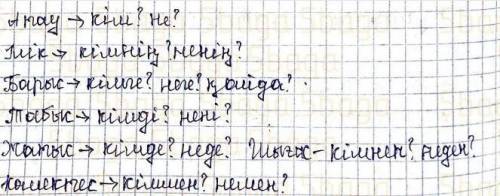 Атау → кім? не?
Ілік → кімнің? ненің?
Барыс → кімге? неге? қайда?
Табыс → кімді? нені?
Жатыс → кімде? неде? Шығыс - кімнен? неден?
Көмектес → кіммен? немен?